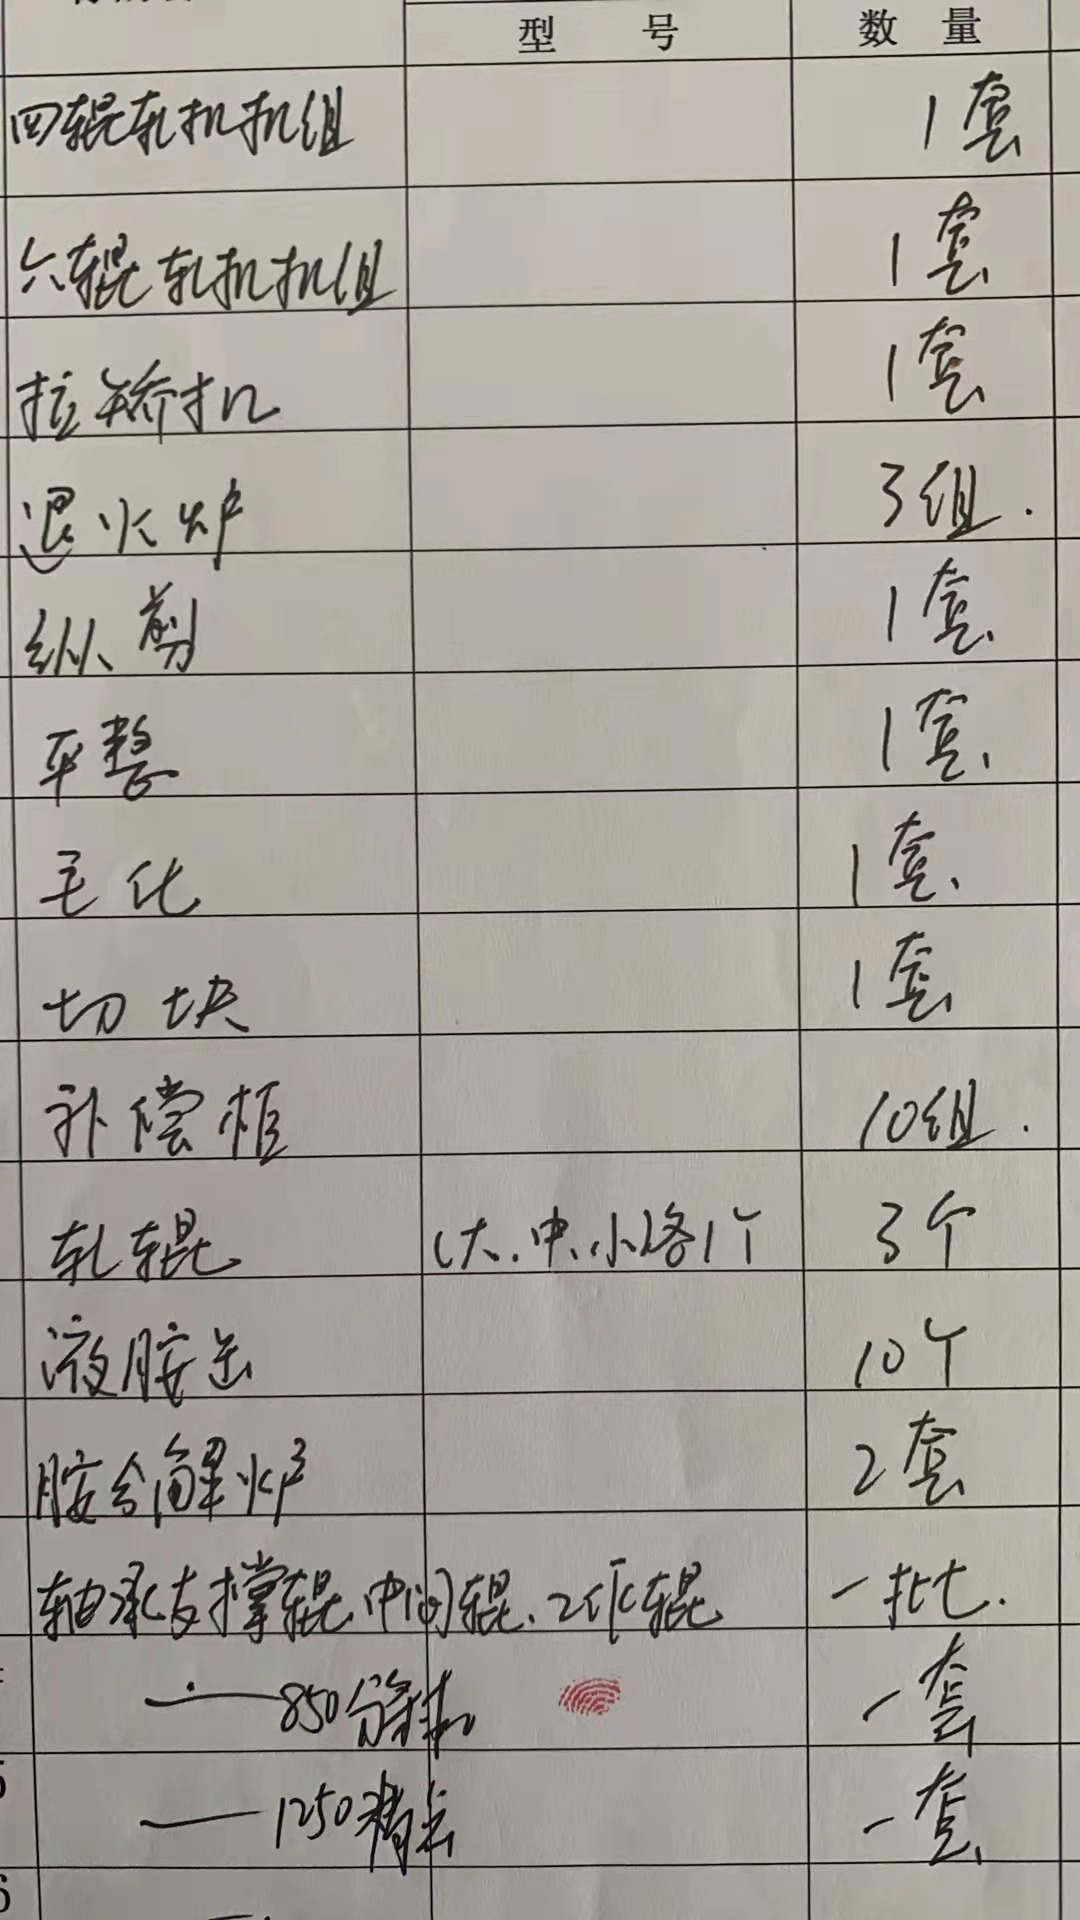 型 号 数 量
四辊轧机机组 1套
六辊轧机机组 1套
拉矫机 1套
退火炉 3组.
纵剪 1套
平整 1套
毛化 1套
切块 1套
补偿柜 10组.
轧辊 (大.中.小各1个 3个
液胺缶 10个
胺分解炉 2套
轴承支撑辊.中间辊.工作辊 一批.
850 一套
1250 一套